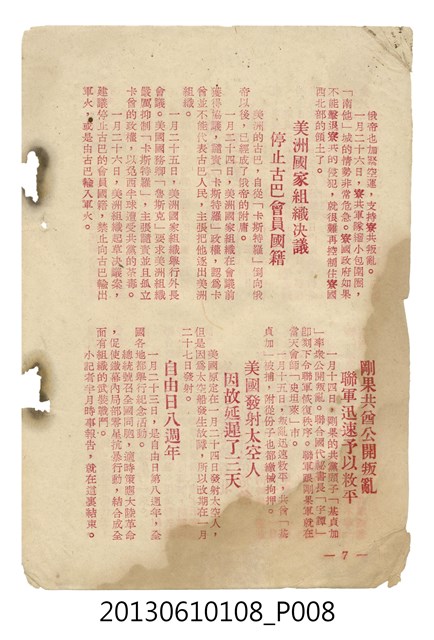 俄帝也加緊空運，支持寮共叛亂。
一月二十六日，寮共軍隊縮小包圍圈，
「南他」城的情勢非常危急。寮國政府如果
不能擊退寮共的侵犯，就很難再控制住寮國
西北部的領土了。
美洲國家組織决議
停止古巴會員國籍
美洲的古巴，自從「卡斯特羅」倒向俄
帝以後，已經成了俄帝的附庸。
一月二十四日，美洲國家組織在會議前
獲得協議，譴責「卡斯特羅」政權，認為卡
酋並不能代表古巴人民，主張把他逐出美洲
組織。
一月二十五日，美洲國家組織舉行外長
會議。美國國務卿「魯斯克」要求美洲組織
嚴厲抑制「卡斯特羅」，主張譴責並且孤立
卡酋的政權，以免西半球遭受共黨的荼毒。
一月二十六日，美洲組織起草决議案，
建議停止古巴的會員國籍，禁止向古巴輸出
軍火，或是由古巴輸入軍火。
剛果共酋公開叛亂
聯軍迅速予以敉平
一月十四日，剛果的共黨頭子「基貞加
」率衆公開叛亂。聯合國代祕書長「宇譚」
即刻下令聯軍恢復秩序，聯軍跟剛果軍就在
當天會師「史坦萊」市。
一月十五日，叛亂迅速敉平，共酋「基
貞加」被捕，附從份子也都繳械拘押。
美國發射太空人
因故延遲了三天
美國原定在一月二十四日發射太空人，
但是因爲太空船發生故障，所以改期在一月
二十七日發射。
自由日八週年
一月二十三日，是自由日第八週年，全
國各地都舉行紀念活動。
總統號召全國同胞，適時策應大陸革命
，促使鐵幕內局部零星抗暴行動，結合成全
面有組織的武裝戰鬥。
小記者半月時事報告，就在這裏結束。
— 7 —
20130610108_P008